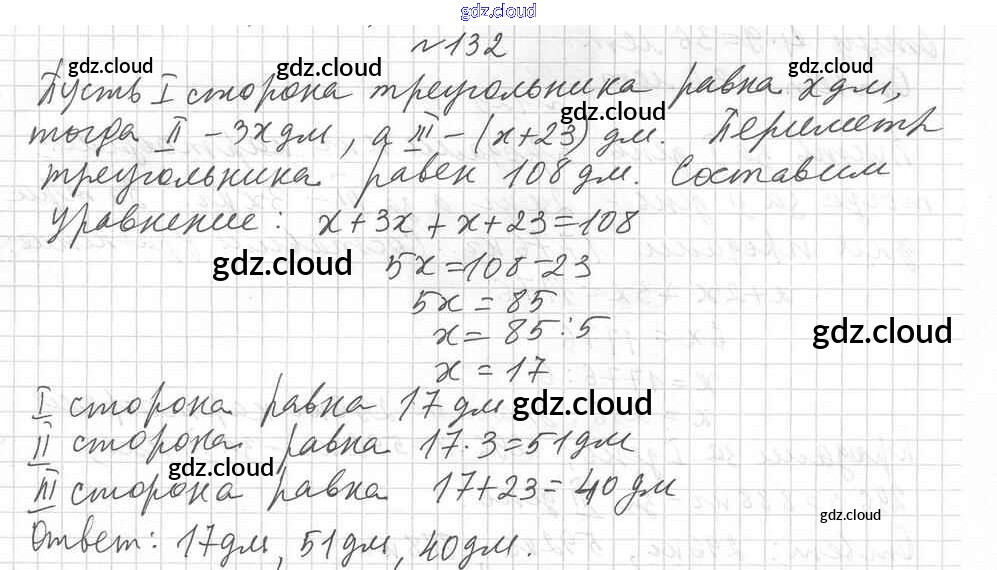 gdz.cloud
№132
gdz.cloud gdz.cloud gdz.cloud
Пусть I сторона треугольника равна x дм,
gdz.cloud
тогда II – 3x дм, а III – (x+23) дм. Периметр
треугольника равен 108 дм. Составим
уравнение: x+3x+x+23=108
gdz.cloud
5x=108-23
5x=85
gdz.cloud
x=85:5
x=17
I сторона равна 17 дм
gdz.cloud
II сторона равна 17·3=51 дм
gdz.cloud
III сторона равна 17+23=40 дм
gdz.cloud
Ответ: 17 дм, 51 дм, 40 дм.